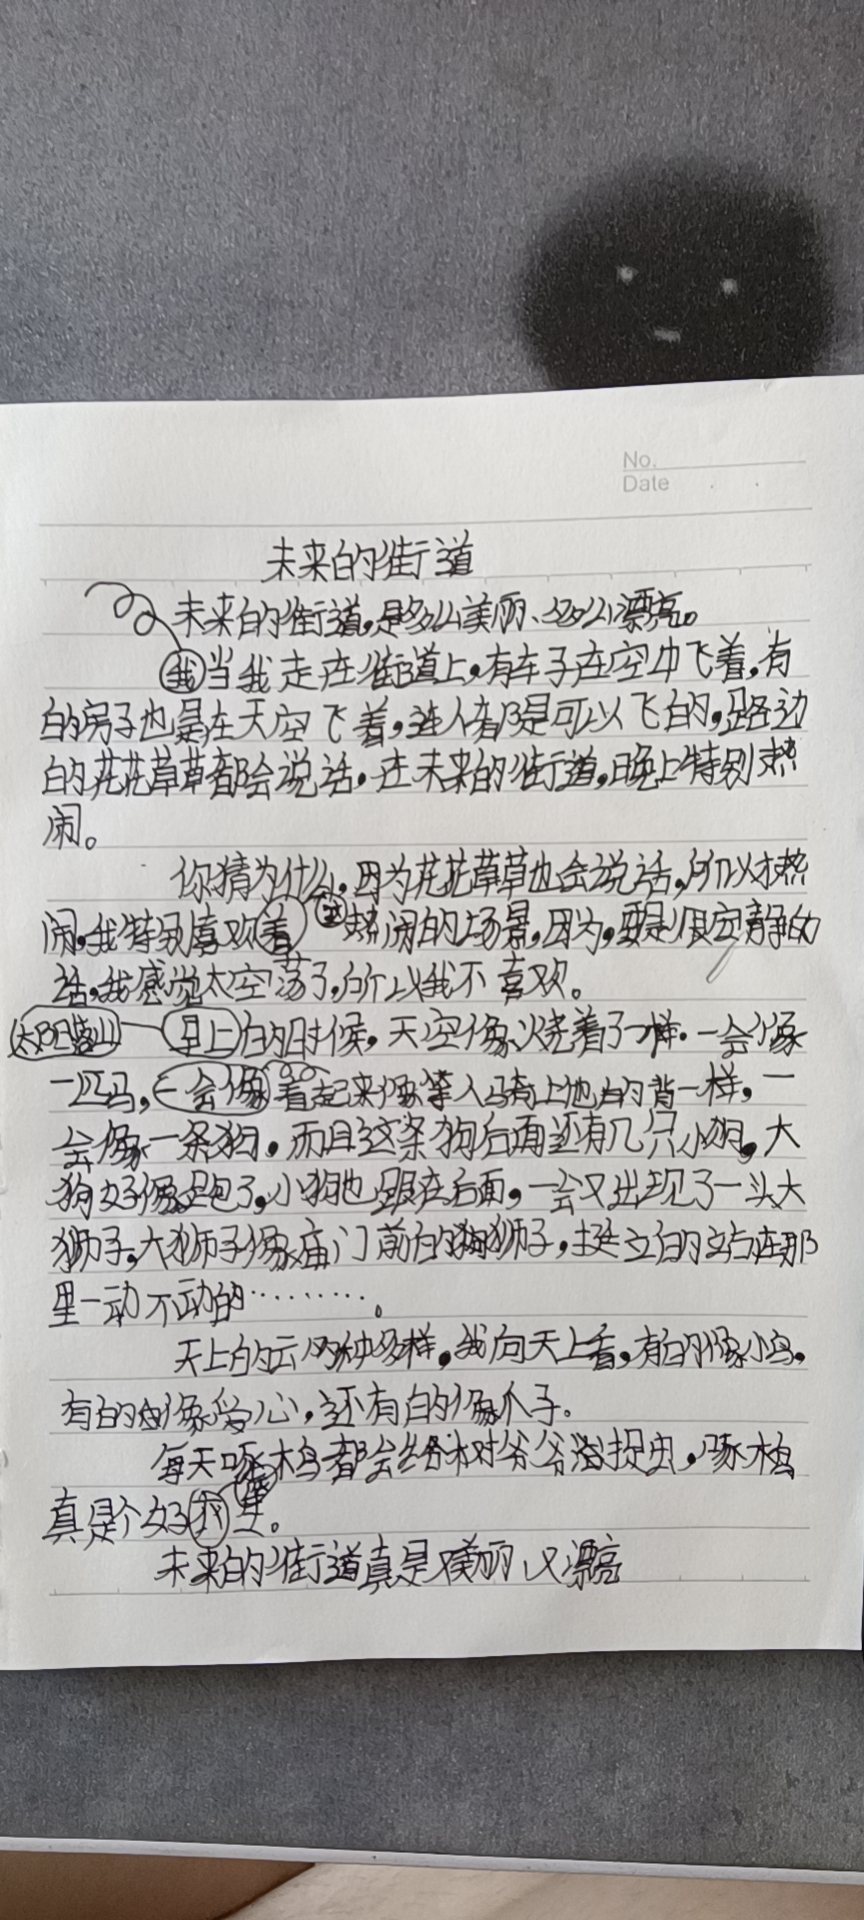 No.
Date
未来的街道
未来的街道,是多么美丽、多么漂亮。
我当我走在街道上,有车子在空中飞着,有
的房子也是在天空飞着,连人都是可以飞的,路边
的花花草草都会说话,在未来的街道,晚上特别热
闹。
你猜为什么,因为花花草草也会说话,所以才热
闹,我特别喜欢着这热闹的场景,因为,要是很空静的
话,我感觉太空荡了,所以我不喜欢。
太阳落山 早上的时候,天空像火烧着了一样.一会像
一匹马,一会像看起来像等人骑上他的背一样,一
会像一条狗,而且这条狗后面还有几只小狗,大
狗好像跑了,小狗也跟在后面,一会又出现了一头大
狮子,大狮子像庙门前的狮子,挺立的站在那
里一动不动的………。
天上的云各种多样,我向天上看,有的像小鸟,
有的像爱心,还有的像爪子。
每天啄木鸟都会给树爷爷捉虫,啄木鸟
真是个好
未来的街道真是又美丽又漂亮